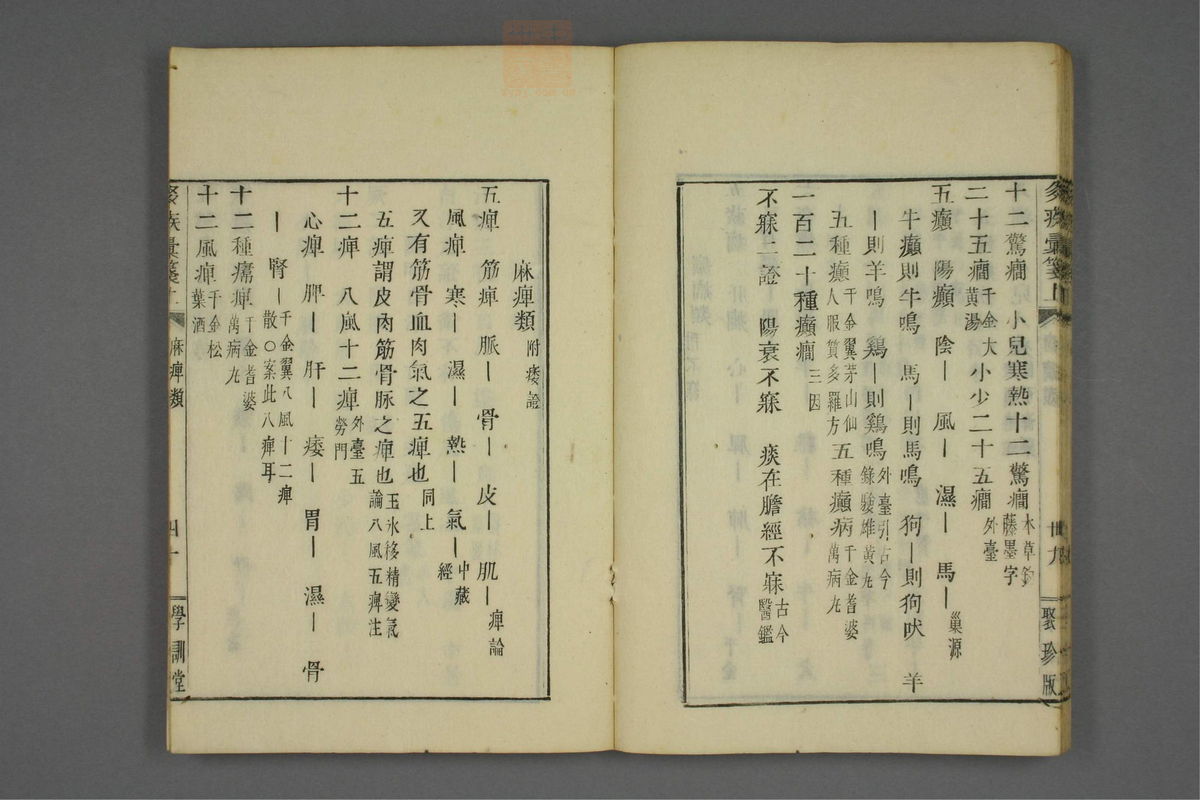 十二驚癇 小兒寒熱十二驚癇 本草鈎藤墨字
二十五癇 千金大黃湯 大小少二十五癇 外臺
五癲 陽癲 陰ー 風ー 濕ー 馬ー 巢源
牛癲則牛鳴 馬ー則馬鳴 狗ー則狗吠 羊
ー則羊鳴 鷄ー則鷄鳴 外臺引古今錄驗雄黃丸
五種癲 千金翼茅山仙人服質多羅方 五種癲病 千金耆婆萬病丸
一百二十種癲癇 三因
不寐二證 陽衰不寐 痰在膽經不寐 古今醫鑑
彙箋上
丗九
聚珍版
麻痺類 附痿證
五痺 筋痺 脈ー 骨ー 皮ー 肌ー 痺論
風痺 寒ー 濕ー 熱ー 氣ー 中藏經
又有筋骨血肉氣之五痺也 同上
五痺謂皮肉筋骨脈之痺也 玉氷移精變氣論八風五痺注
十二痺 八風十二痺 外臺五勞門
心痺 脾ー 肝ー 痿ー 胃ー 濕ー 骨
ー 腎ー 千金翼八風十二痺散○案此八痺耳
十二種痛痺 千金耆婆萬病丸
十二風痺 千金松葉酒
疾彙箋上
麻痺類
四十
學訓堂